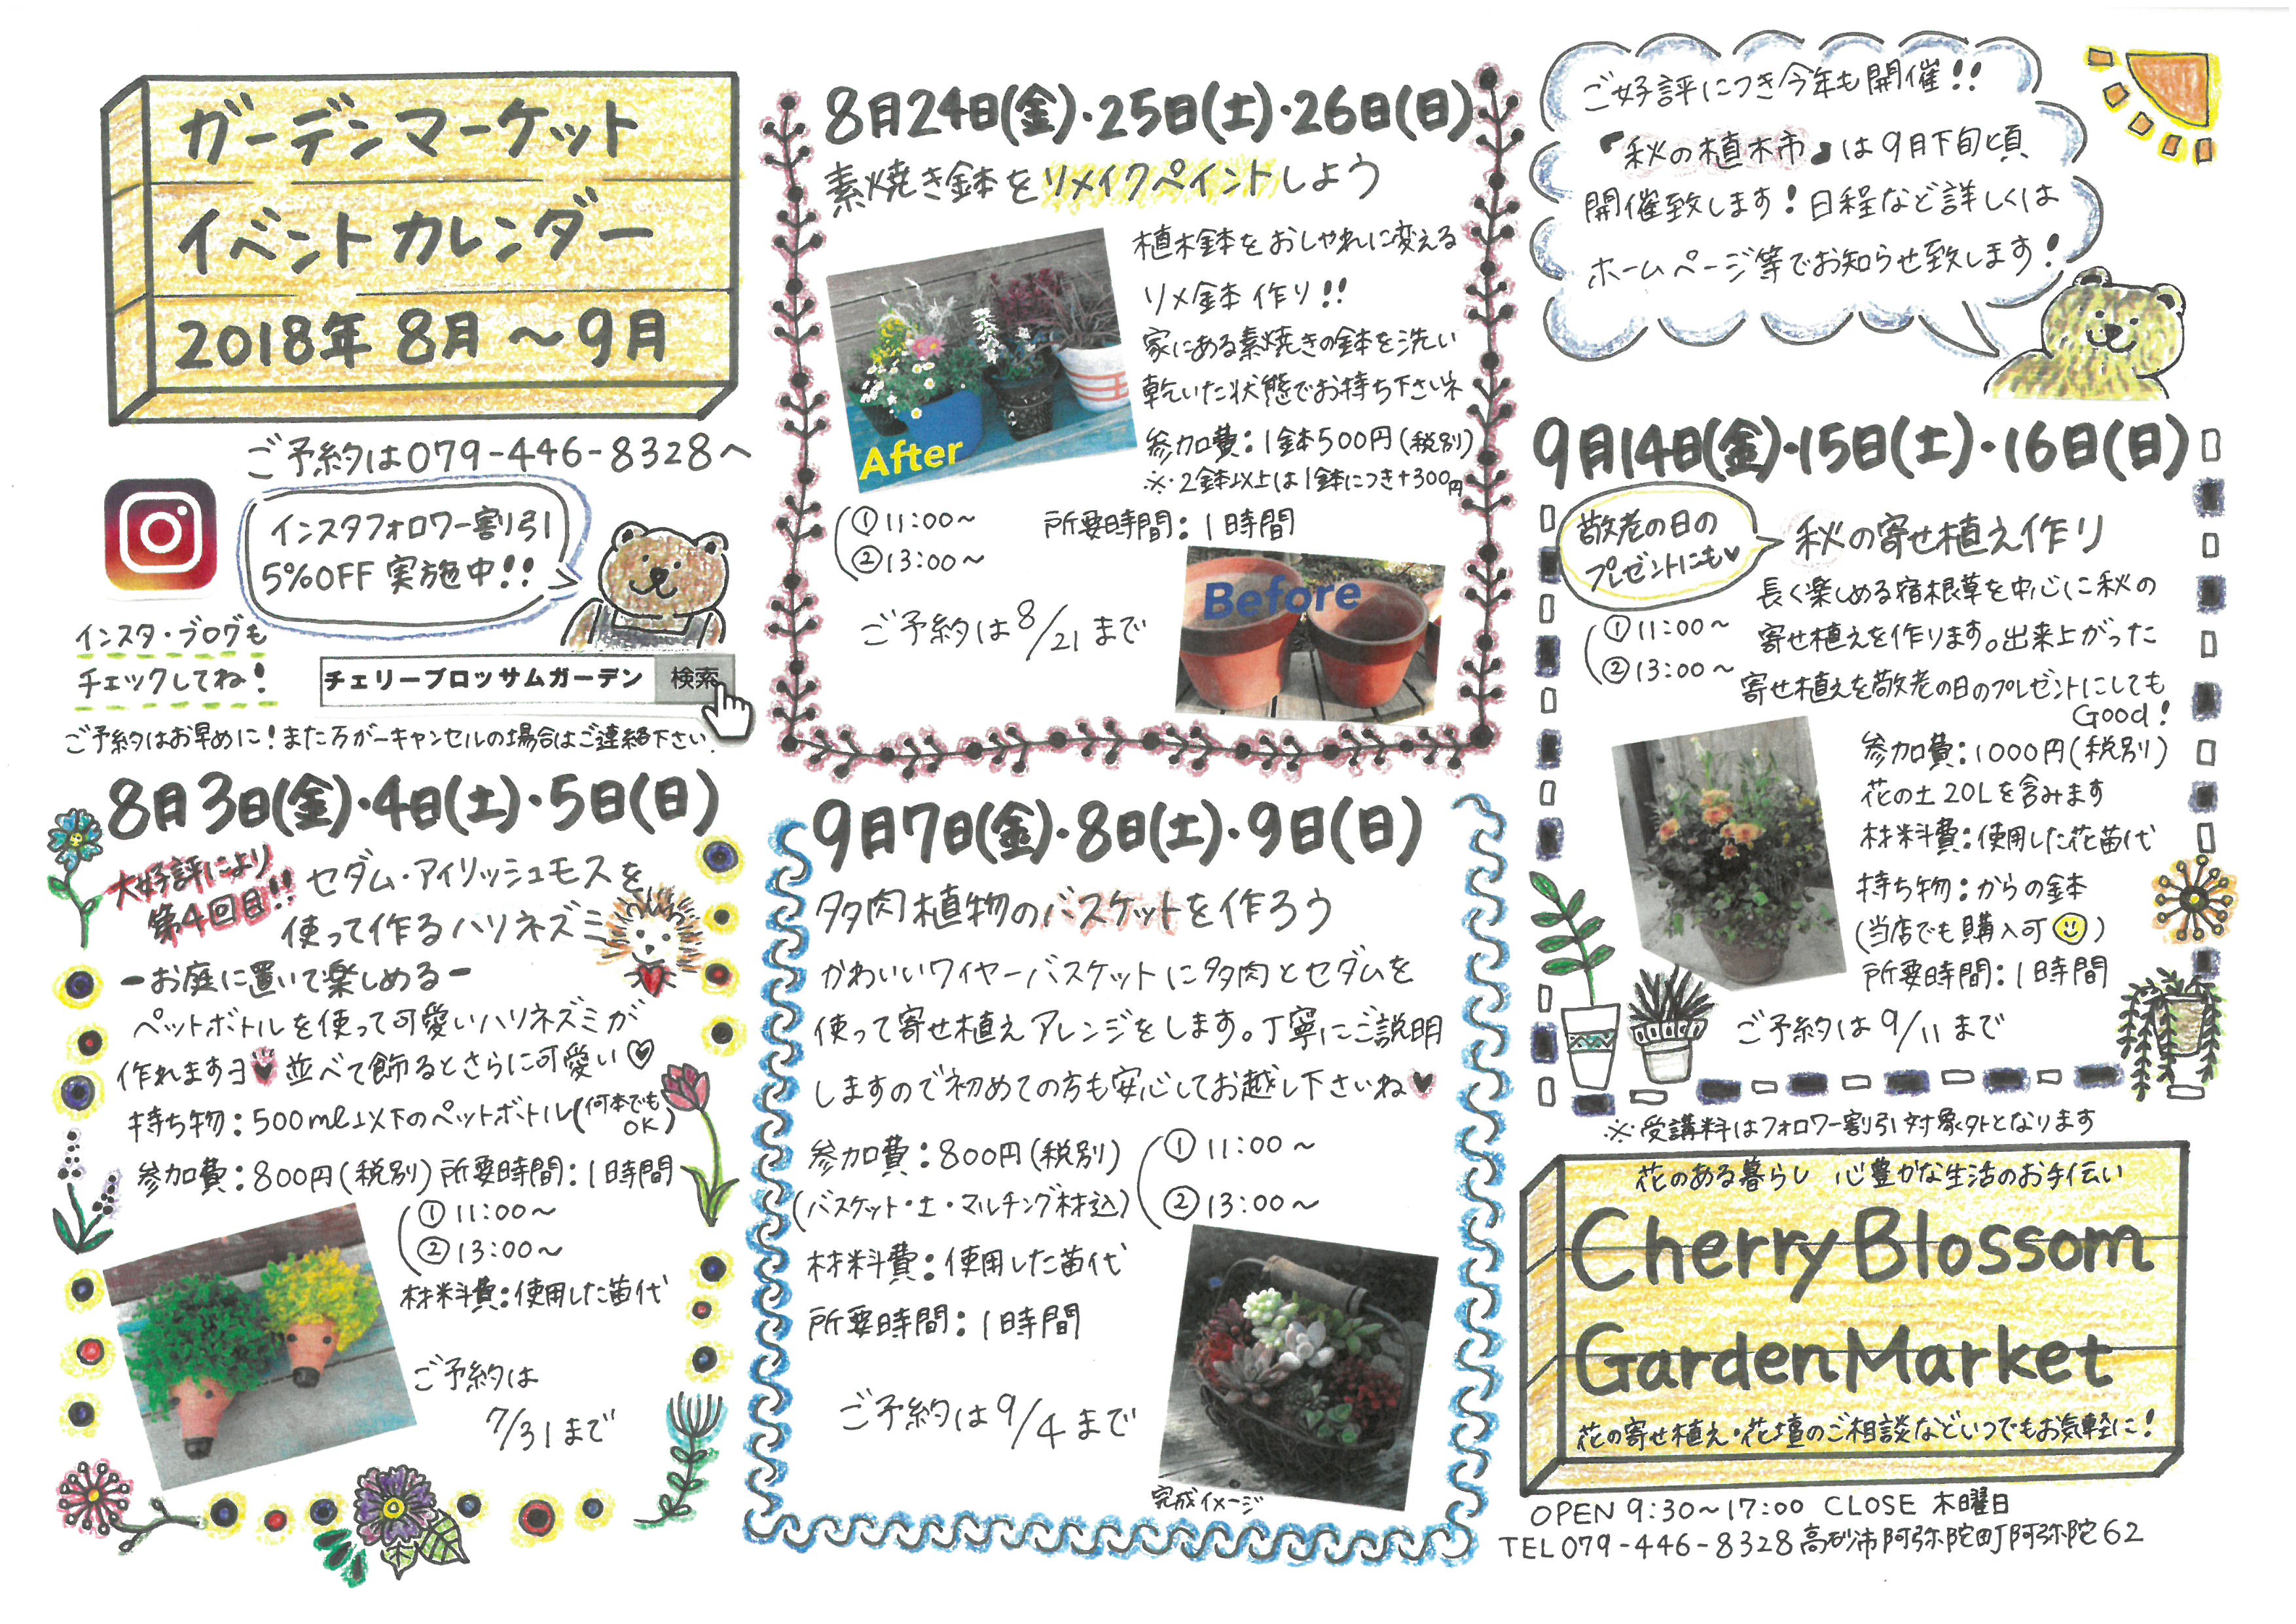 ガーデンマーケット
イベントカレンダー
2018年 8月 ～ 9月
ご予約は079-446-8328へ
インスタフォロワー割引
5%OFF 実施中!!
インスタ・ブログも
チェックしてね!
チェリーブロッサムガーデン 検索
ご予約はお早めに!また万が一キャンセルの場合はご連絡下さい.
8月3日(金)・4日(土)・5日(日)
大好評により
第4回目!!
セダム・アイリッシュモスを
使って作るハリネズミ
ーお庭に置いて楽しめるー
ペットボトルを使って可愛いハリネズミが
作れますヨ♥並べて飾るとさらに可愛い♡
持ち物:500ml以下のペットボトル(何本でもOK)
参加費:800円(税別) 所要時間:1時間
①11:00～
②13:00～
材料費:使用した苗代
ご予約は
7/31まで
8月24日(金)・25日(土)・26日(日)
素焼き鉢をリメイクペイントしよう
植木鉢をおしゃれに変える
リメ鉢作り!!
家にある素焼きの鉢を洗い
乾いた状態でお持ち下さいネ
参加費:1鉢500円(税別)
※2鉢以上は1鉢につき+300円
After
①11:00～
②13:00～
所要時間:1時間
Before
ご予約は8/21まで
9月7日(金)・8日(土)・9日(日)
多肉植物のバスケットを作ろう
かわいいワイヤーバスケットに多肉とセダムを
使って寄せ植えアレンジをします。丁寧にご説明
しますので初めての方も安心してお越し下さいね♥
参加費:800円(税別)
(バスケット・土・マルチング材込)
①11:00～
②13:00～
材料費:使用した苗代
所要時間:1時間
ご予約は9/4まで
完成イメージ
ご好評につき今年も開催!!
『秋の植木市』は9月下旬頃
開催致します!日程など詳しくは
ホームページ等でお知らせ致します!
9月14日(金)・15日(土)・16日(日)
敬老の日の
プレゼントにも♥
秋の寄せ植え作り
長く楽しめる宿根草を中心に秋の
寄せ植えを作ります。出来上がった
寄せ植えを敬老の日のプレゼントにしても
Good!
①11:00～
②13:00～
参加費:1000円(税別)
花の土20Lを含みます
材料費:使用した花苗代
持ち物:からの鉢
(当店でも購入可☺)
所要時間:1時間
ご予約は9/11まで
※受講料はフォロワー割引対象外となります
花のある暮らし 心豊かな生活のお手伝い
Cherry Blossom
Garden Market
花の寄せ植え・花壇のご相談などいつでもお気軽に!
OPEN 9:30～17:00 CLOSE 木曜日
TEL079-446-8328高砂市阿弥陀町阿弥陀62